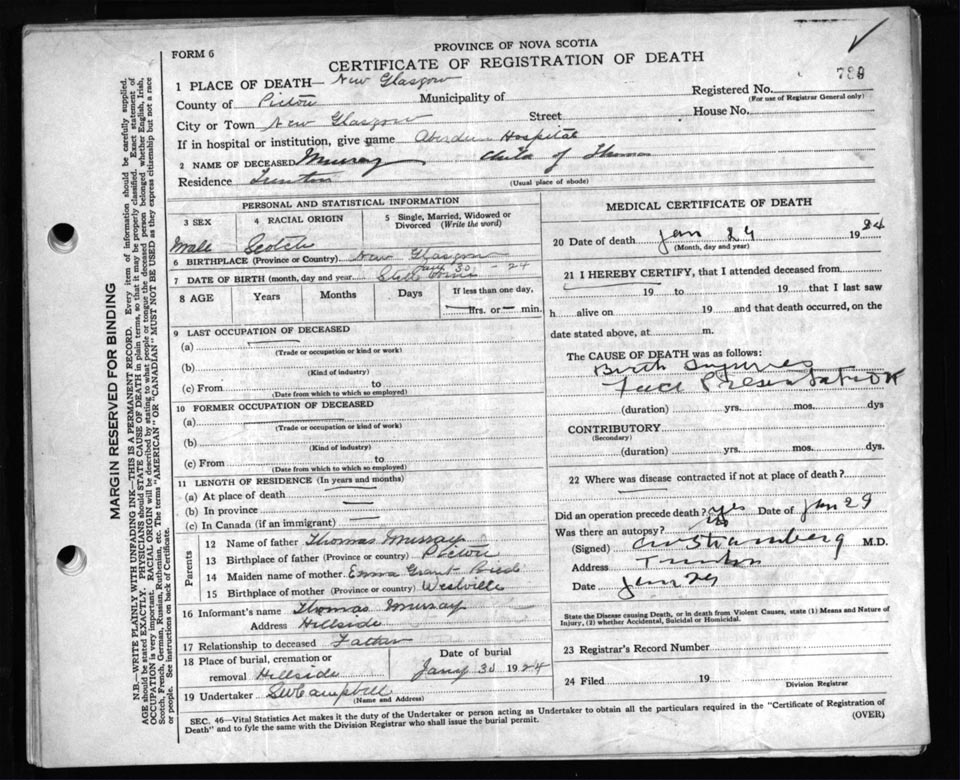 PROVINCE OF NOVA SCOTIA
FORM 6
CERTIFICATE OF REGISTRATION OF DEATH
789
1 PLACE OF DEATH— New Glasgow
Registered No.
(For use of Registrar General only)
County of Pictou Municipality of
City or Town New Glasgow Street House No.
If in hospital or institution, give name Aberdeen Hospital
2 NAME OF DECEASED Murray child of Thomas
Residence Trenton (Usual place of abode)
PERSONAL AND STATISTICAL INFORMATION
3 SEX 4 RACIAL ORIGIN 5 Single, Married, Widowed or Divorced (Write the word)
Male Scotch
6 BIRTHPLACE (Province or Country) New Glasgow
7 DATE OF BIRTH (month, day and year) Still Jan 30 - 24
8 AGE Years Months Days If less than one day,
hrs. or min.
9 LAST OCCUPATION OF DECEASED
(a)
(Trade or occupation or kind or work)
(b)
(Kind of industry)
(c) From to
(Date from which to which so employed)
10 FORMER OCCUPATION OF DECEASED
(a)
(Trade or occupation of kind of work)
(b)
(Kind of industry)
(c) From to
(Date from which to which so employed)
11 LENGTH OF RESIDENCE (In years and months)
(a) At place of death
(b) In province
(c) In Canada (if an immigrant)
Parents
12 Name of father Thomas Murray
13 Birthplace of father (Province or country) Pictou
14 Maiden name of mother Emma Grant
15 Birthplace of mother (Province or Country) Westville
16 Informant's name Thomas Murray
Address Hillside
17 Relationship to deceased Father
18 Place of burial, cremation or removal Hillside
Date of burial
Jany 30 1924
19 Undertaker SW Campbell
(Name and Address)
MEDICAL CERTIFICATE OF DEATH
20 Date of death Jan 29 1924
(Month, day and year)
21 I HEREBY CERTIFY, that I attended deceased from
19 to 19 that I last saw
h alive on 19 and that death occurred, on the
date stated above, at m.
The CAUSE OF DEATH was as follows:
Birth Injuries
Face Presentation
(duration) yrs. mos. dys
CONTRIBUTORY
(Secondary)
(duration) yrs. mos. dys.
22 Where was disease contracted if not at place of death?
Did an operation precede death? yes Date of Jan 29
Was there an autopsy?
(Signed) Stramberg M.D.
Address Trenton
Date Jan 29
State the Disease causing Death, or in death from Violent Causes, state (1) Means and Nature of
Injury, (2) whether Accidental, Suicidal or Homicidal.
23 Registrar's Record Number
24 Filed 19
Division Registrar
SEC. 46—Vital Statistics Act makes it the duty of the Undertaker or person acting as Undertaker to obtain all the particulars required in the "Certificate of Registration of
Death" and to fyle the same with the Division Registrar who shall issue the burial permit.
(OVER)
MARGIN RESERVED FOR BINDING
N.B.—WRITE PLAINLY WITH UNFADING INK—THIS IS A PERMANENT RECORD. Every item of information should be carefully supplied.
AGE should be stated EXACTLY. PHYSICIANS should STATE CAUSE OF DEATH in plain terms, so that it may be properly classified. Exact statement of
OCCUPATION is very important. RACIAL ORIGIN will be described by stating to what people or tongue the deceased person belonged whether English, Irish,
Scotch, French, German, Russian, Ruthenian, etc. The terms "AMERICAN" OR "CANADIAN" MUST NOT BE USED as they express citizenship but not a race
or people. See instructions on back of Certificate.